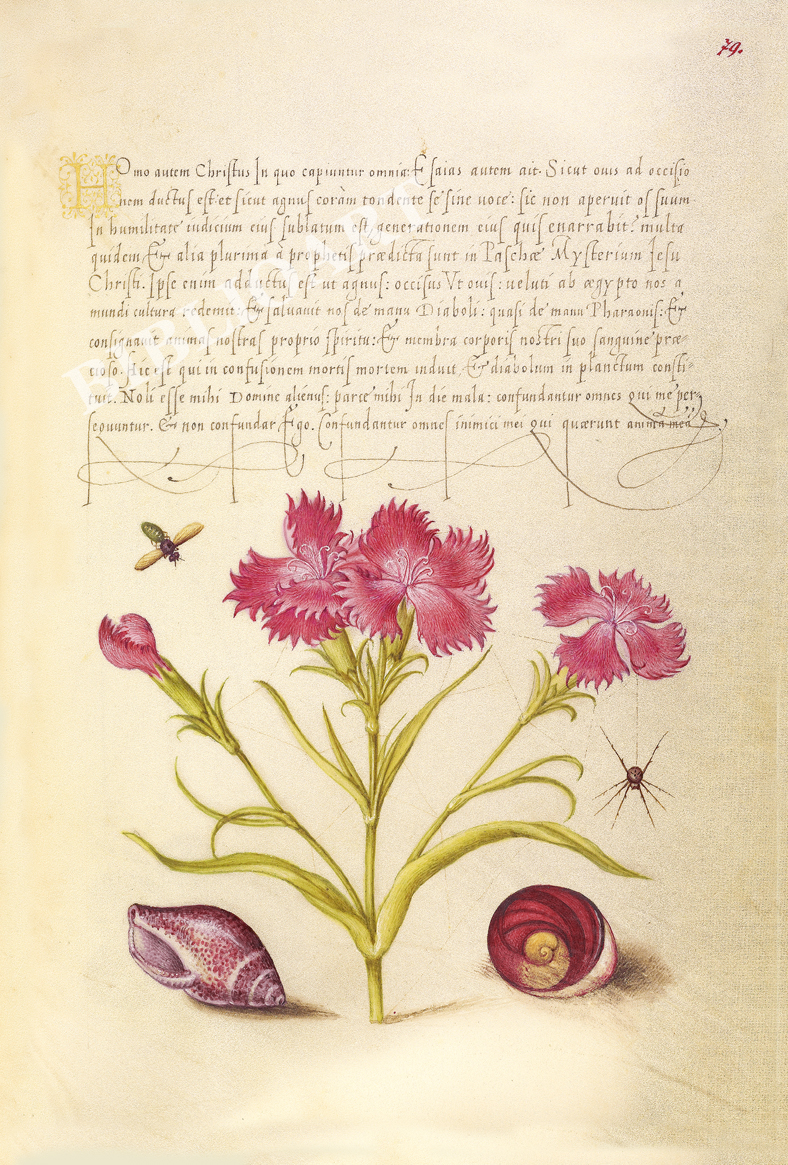 79.
Homo autem Christus In quo capiuntur omnia: Esaias autem ait. Sicut ouis ad occisio
nem ductus est: et sicut agnus coràm tondente se sine voce: sic non aperuit os suum
In humilitate iudicium eius sublatum est: generationem eius quis enarrabit? multa
quidem, & alia plurima à prophetis prædicta sunt in Paschæ Mysterium Iesu
Christi. Ipse enim adductus est ut agnus: occisus Vt ouis: veluti ab ægypto nos a
mundi cultura redemit: & saluauit nos de manu Diaboli: quasi de manu Pharaonis: &
consignauit animas nostras proprio spiritu: & membra corporis nostri suo sanguine præ-
cioso. Hic est qui in confusionem mortis mortem induit, & diabolum in planctum consti-
tuit. Noli esse mihi Domine alienus: parce mihi In die mala: confundantur omnes qui me per
sequuntur. & non confundar Ego. Confundantur omnes inimici mei qui quærunt anima meã
BIBLIOART